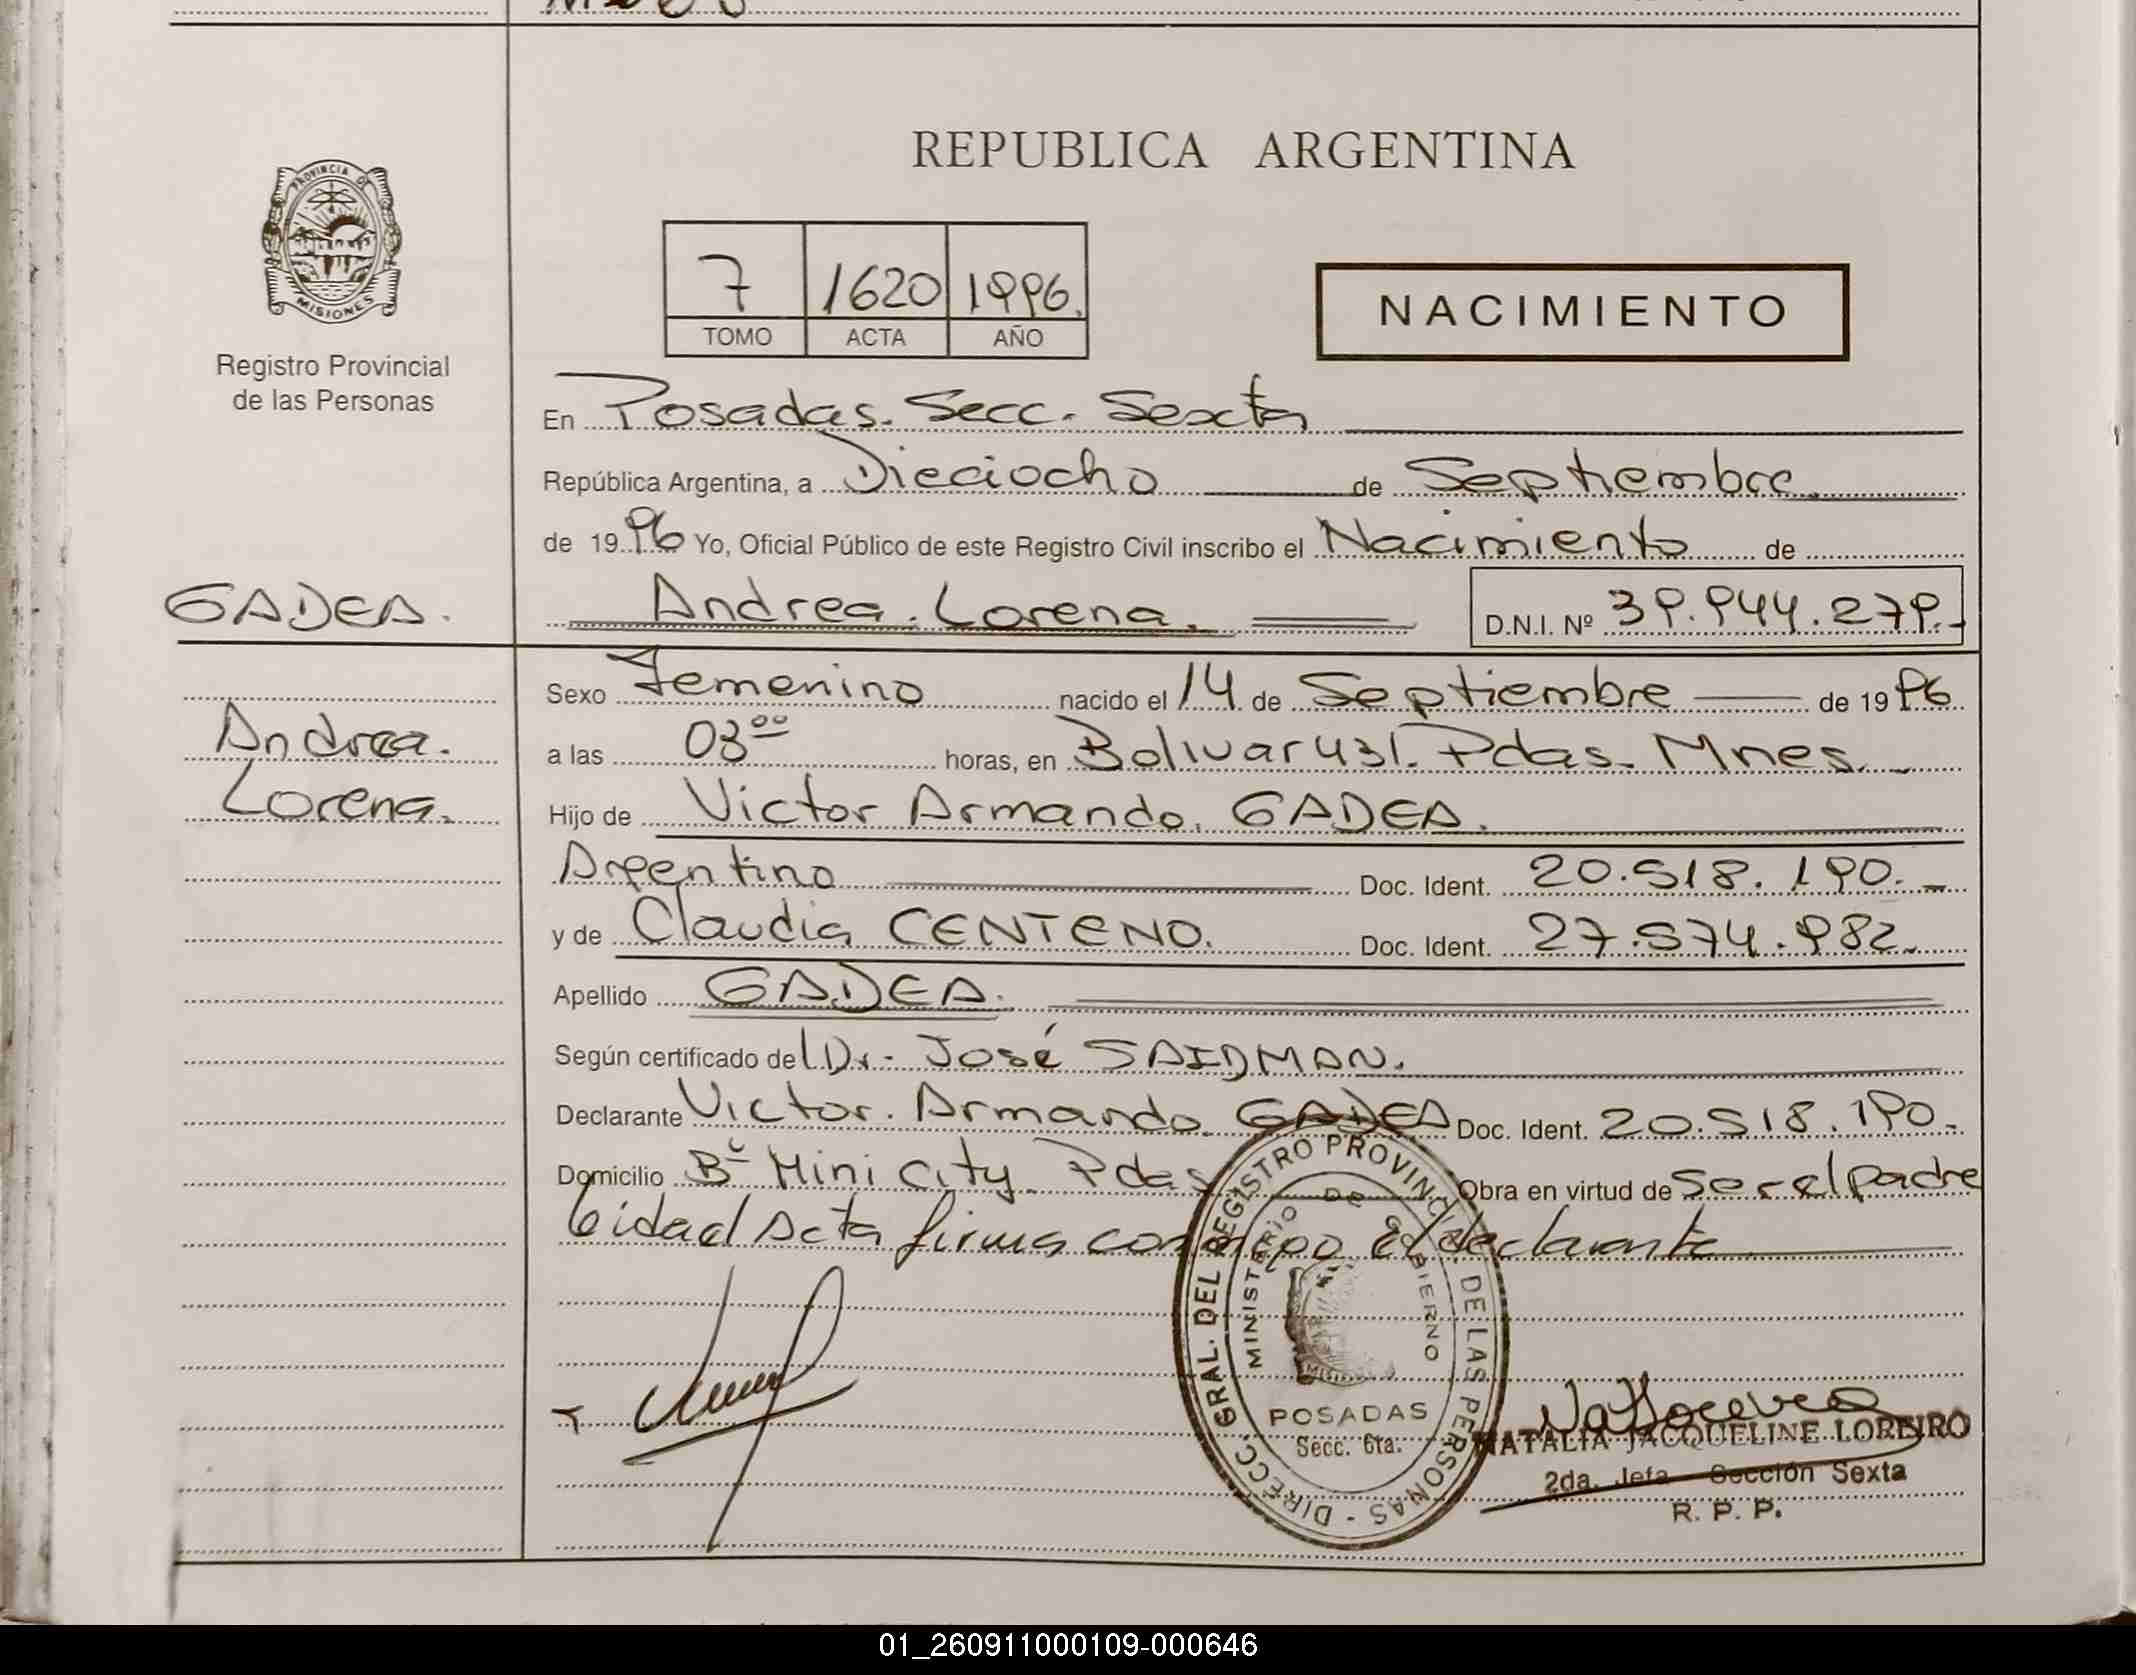 REPUBLICA ARGENTINA
PROVINCIA DE
MISIONES
Registro Provincial
de las Personas
7 1620 1996.
TOMO ACTA AÑO
NACIMIENTO
En Posadas. Secc. Sexta
República Argentina, a Dieciocho de Septiembre
de 1996 Yo, Oficial Público de este Registro Civil inscribo el Nacimiento de
GADEA. Andrea. Lorena. D.N.I. Nº 39.944.279.
Sexo Femenino nacido el 14 de Septiembre de 1996
Andrea.
a las 03⁰⁰ horas, en Bolivar 431. Pdas. Mnes.
Lorena.
Hijo de Victor Armando. GADEA.
Argentino Doc. Ident. 20.518.190.
y de Claudia CENTENO. Doc. Ident. 27.574.982.
Apellido GADEA.
Según certificado del Dr. José SAIDMAN.
Declarante Victor. Armando. GADEA Doc. Ident. 20.518.190.
Domicilio Bº Mini City. Pdas Obra en virtud de ser el padre
Leidad Acta firma conmigo el declarante
DIRECC. GRAL. DEL REGISTRO PROVINCIAL DE LAS PERSONAS -
MINISTERIO DE GOBIERNO
POSADAS
Secc. 6ta.
NATALIA JACQUELINE LOREIRO
2da. Jefa Sección Sexta
R. P. P.
01_260911000109-000646